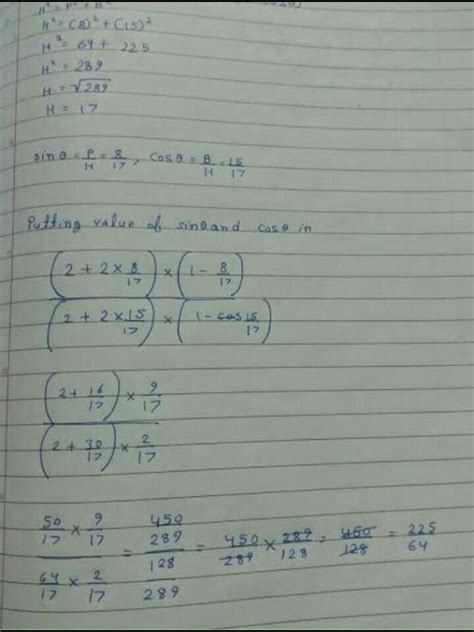 H² = P² + B²
H² = (8)² + (15)²
H² = 64 + 225
H² = 289
H = √289
H = 17
sinθ = P/H = 8/17, cosθ = B/H = 15/17
Putting value of sinθ and cosθ in
(2 + 2 × 8/17) × (1 - 8/17)
(2 + 2 × 15/17) × (1 - cos 15/17)
(2 + 16/17) × 9/17
(2 + 30/17) × 2/17
50/17 × 9/17 / 64/17 × 2/17 = 450/289 / 128/289 = 450/289 × 289/128 = 450/128 = 225/64